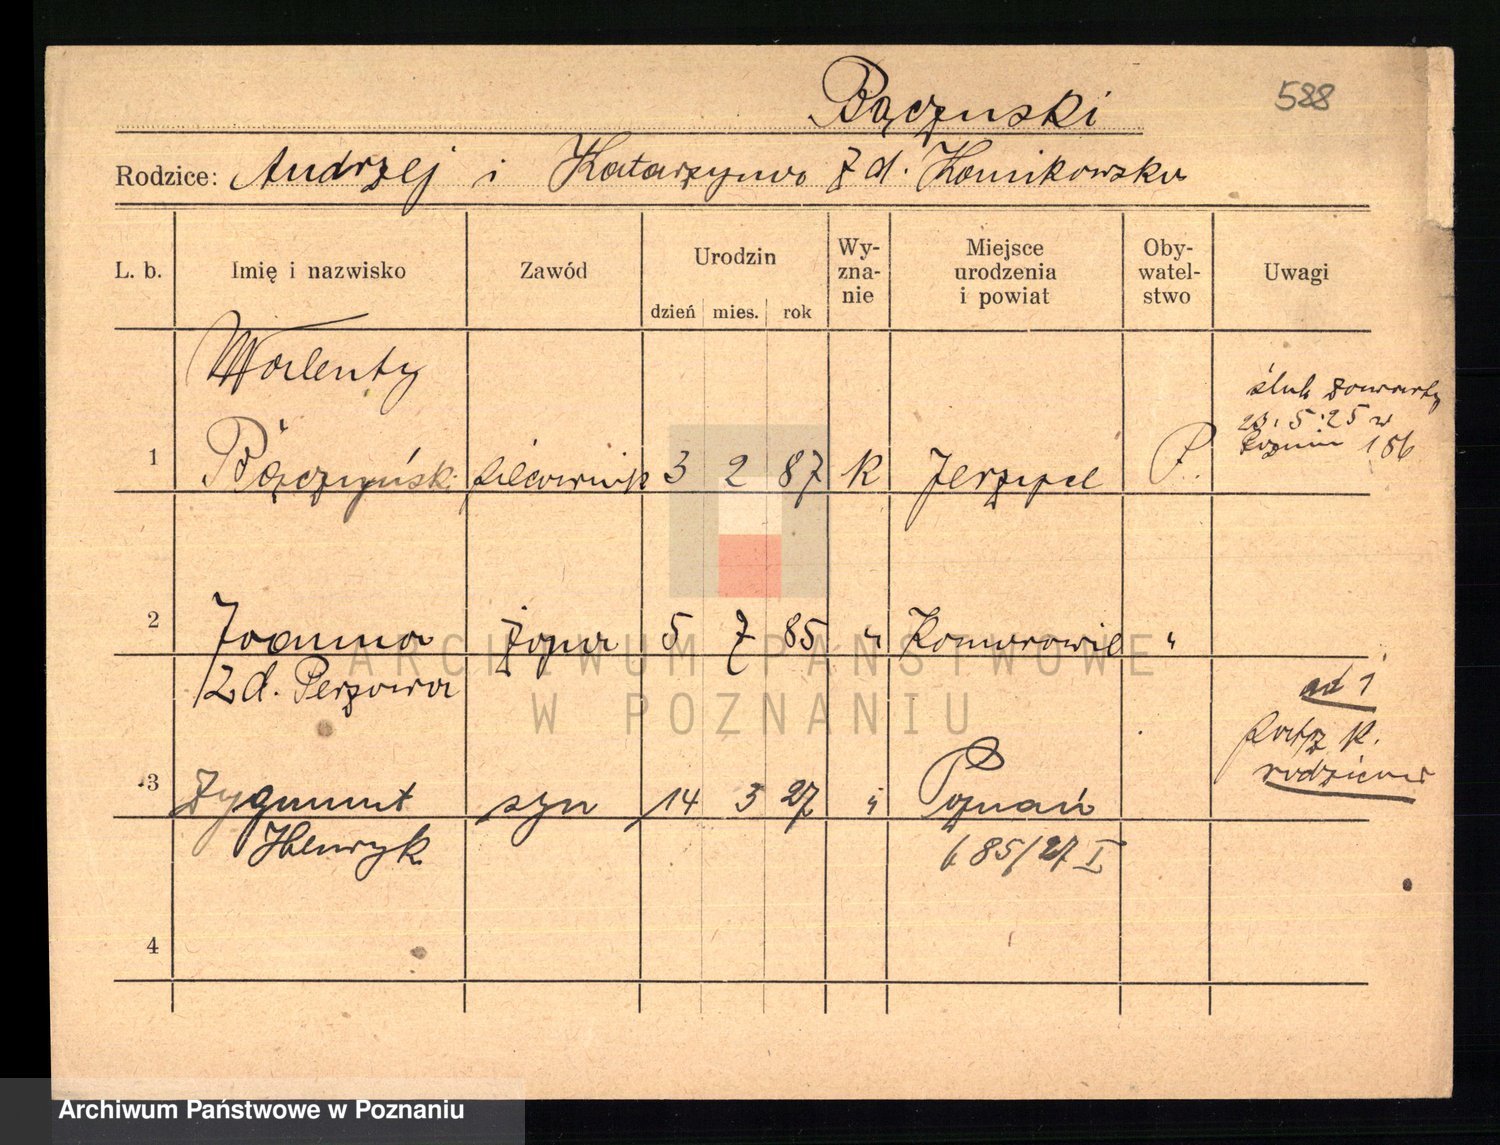 588
Bączyński
Rodzice: Andrzej i Katarzyna z d. Konikowska
L. b. Imię i nazwisko Zawód Urodzin Wy-zna-nie Miejsce urodzenia i powiat Oby-watel-stwo Uwagi
dzień mies. rok
Walenty
ślub zawarty
23.5.25 w
1 Bączyński 3 2 87 K P. 186
2 Joanna żona 5 7 85 " "
z d.
ad 1
patrz k.
rodziców
3 Zygmunt syn 14 3 27 " Poznań
Henryk 685/27 I
4
ARCHIWUM PAŃSTWOWE
W POZNANIU
Archiwum Państwowe w Poznaniu